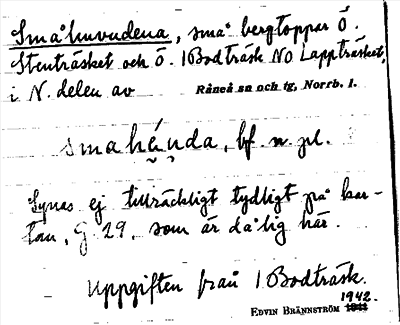 Småhuvudena, små bergtoppar Ö.
Stenträsket och Ö. 1 Bodträsk NO Lappträsket,
i N. delen av Råneå sn och tg, Norrb. l.
smahéṇda, bf. n. pl.
Synas ej tillräckligt tydligt på kar-
tan, G 29, som är dålig här.
Uppgiften från 1 Bodträsk.
1942.
EDVIN BRÄNNSTRÖM 1941